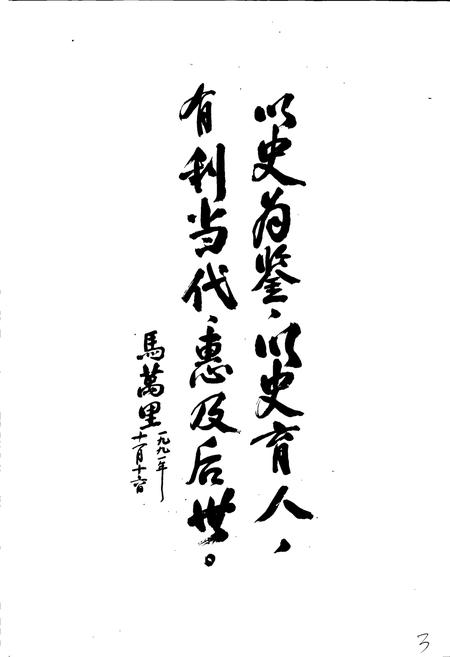 以史为鉴、以史育人，
有利当代、惠及后世。
馬萬里
一九九一年
十一月十六日
3